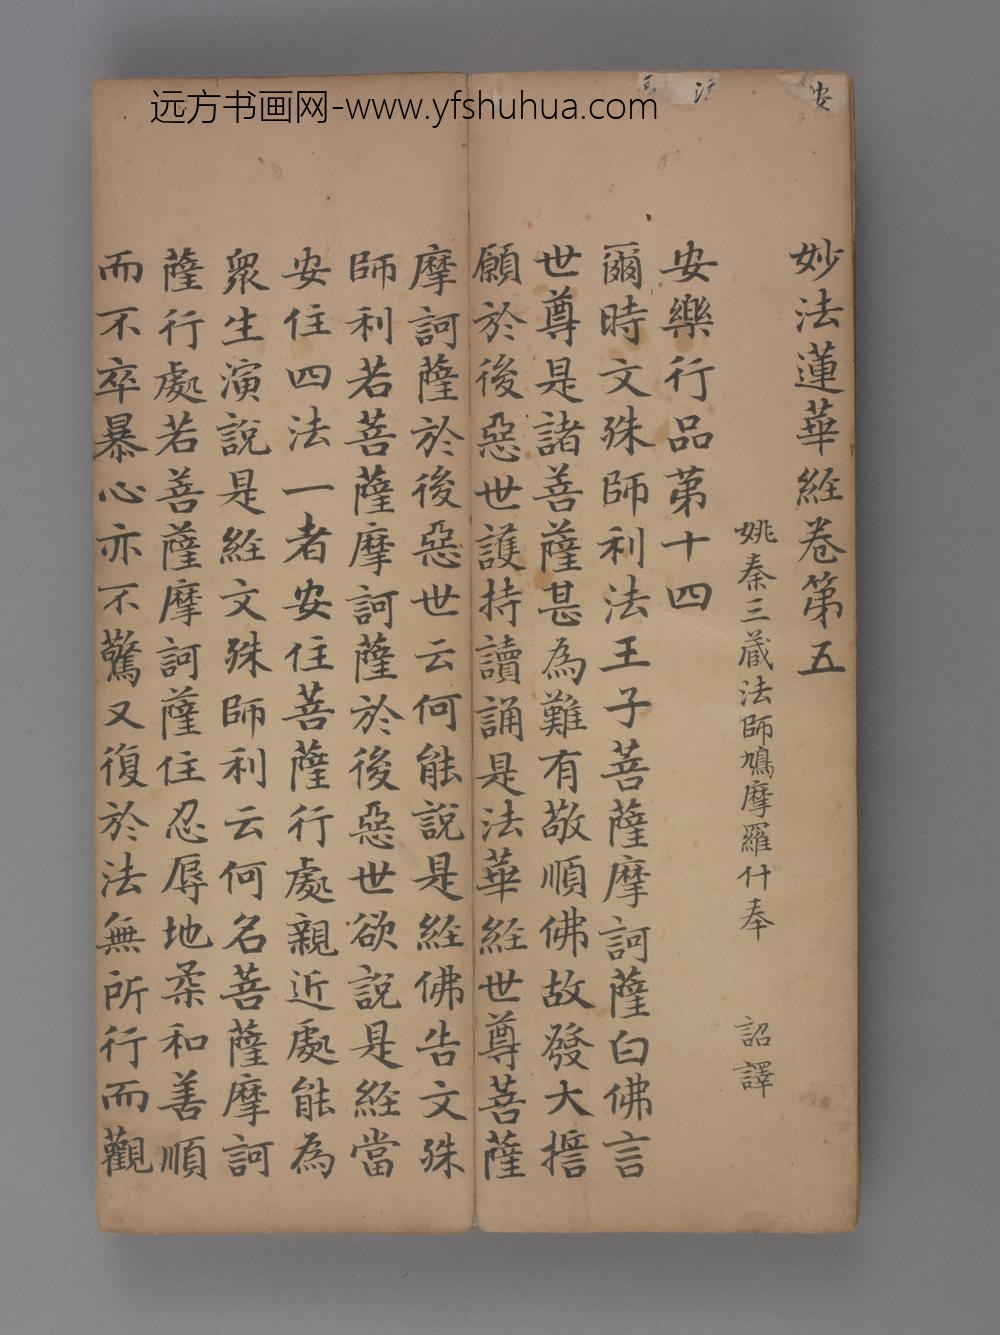 远方书画网-www.yfshuhua.com
安
妙法蓮華經卷第五
姚秦三藏法師鳩摩羅什奉 詔譯
安樂行品第十四
爾時文殊師利法王子菩薩摩訶薩白佛言
世尊是諸菩薩甚為難有敬順佛故發大誓
願於後惡世護持讀誦是法華經世尊菩薩
摩訶薩於後惡世云何能說是經佛告文殊
師利若菩薩摩訶薩於後惡世欲說是經當
安住四法一者安住菩薩行處親近處能為
眾生演說是經文殊師利云何名菩薩摩訶
薩行處若菩薩摩訶薩住忍辱地柔和善順
而不卒暴心亦不驚又復於法無所行而觀